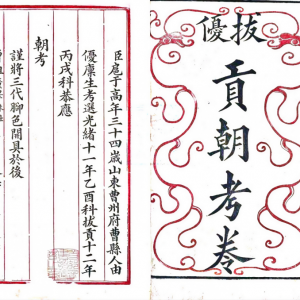 拔優
貢朝考卷
臣扈于高年三十四歲山東曹州府曹縣人由
優廩生考選光緒十一年乙酉科拔貢十二年
丙戌科恭應
朝考
謹將三代腳色開具於後